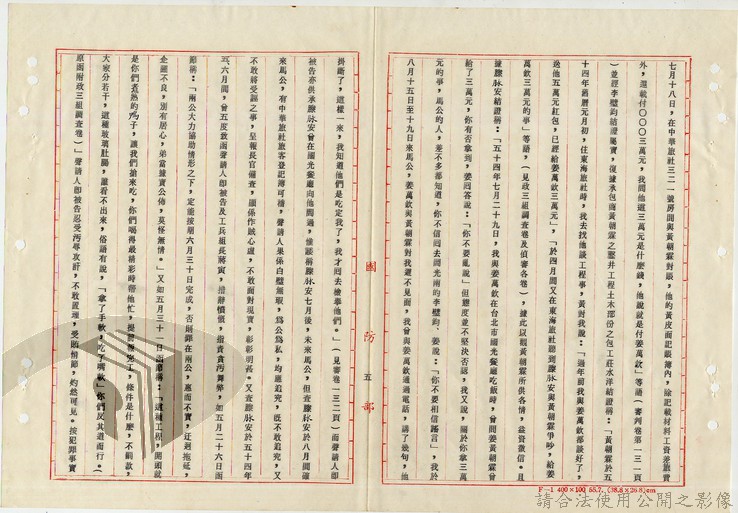 七月十八日，在中華旅社三二一號房間與黃朝霖對賬，他的黃皮面記賬簿內，除記載材料工資差旅費
外，還載付〇〇〇三萬元，我問他這三萬元是什麼錢，他說就是付姜萬欽」等語（審判卷第一三一頁
）並經李璧鈞結證屬實，復據承包商黃朝霖之墾井工程土木部份之包工莊水洋結證稱：「黃朝霖於五
十四年過曆元月初，住東海旅社時，我去找他談工程事，黃對我說：「過年前我與姜萬欽都談好了，
送他五萬元紅包，已經給姜萬欽三萬元」，「於四月間又在東海旅社聽到滕脉安與黃朝霖爭吵，給姜
萬欽三萬元的事」等語，（見政三組調查卷及偵審各卷），據此以觀黃朝霖所供各情，益資徵信。且
據滕脉安結證稱：「五十四年七月二十九日，我與姜萬欽在台北市國光餐廳吃飯時，曾問姜朝霖曾
給了三萬元，你有否拿到，姜回答說：「你不要亂說」但態度並不堅決否認，我又說，關於你拿三萬
元的事，馬公的人，差不多都知道，你不信問去問光南的李璧鈞、姜說：「你不要相信謠言」，我於
八月十五日至十九日來馬公，姜萬欽與黃朝霖對我避不見面，我曾與姜萬欽通過電話，講了幾句，他
國防部
五
掛斷了，這樣一來，我知道他們是吃定我了，我才回去檢舉他們。」（見審卷一三二頁）而聲請人即
被告亦供承滕脉安曾在國光餐廳向他問過，惟謎稱滕脉安七月後，未來馬公，但查滕脉安於八月間確
來馬公，有中華旅社旅客登記簿可稽，聲請人果係白璧無瑕，爲公爲私，均應追究，既不敢追究，又
不敢將受謠之事，呈報長官備查，顯係作賊心虛，不敢面對現實，彰彰明甚。又查滕脉安於五十四年
五、六月間，曾五度致函聲請人即被告及工兵組長蔣寅，措辭憤慨，指責貪汚舞弊，如五月二十六日函
節稱：「兩公大力協助情形之下，定能按期六月三十日完成，否則罪在兩公，惠而不實，迂迴拖延，
企圖不良，別有居心，弟當據實公佈，莫怪無情。」又如五月三十一日函節稱：「這種工程，開頭就
是你們煮熟的鴨子，讓我們搶來吃，你們喝得最精彩時帮他忙，提前報完工，條件是什麼，不罰款，
大家分若干，這種玻璃肚腸，誰看不出來，俗語有說，「拿了手軟，吃了嘴軟」你們反其道而行。（
原函附政三組調查卷）」聲請人即被告忍受汚辱攻訐，不敢置理，受賄情節，灼然可見。按犯罪事實
F—1 400×100 55.7. (38.8×26.8)cm
請合法使用公開之影像